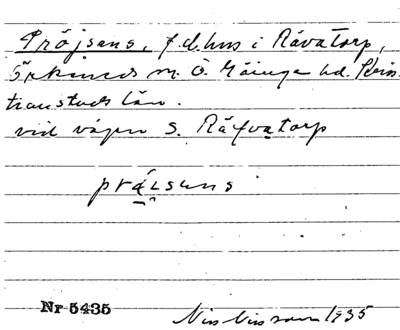 Pröjsens, f.d. hus i Rävatorp,
Örkeneds sn. Ö. Göinge hd. Kris-
tianstads län.
vid vägen S. Rävatorp
präisens
Nr 5435
Nils Nilsson 1935